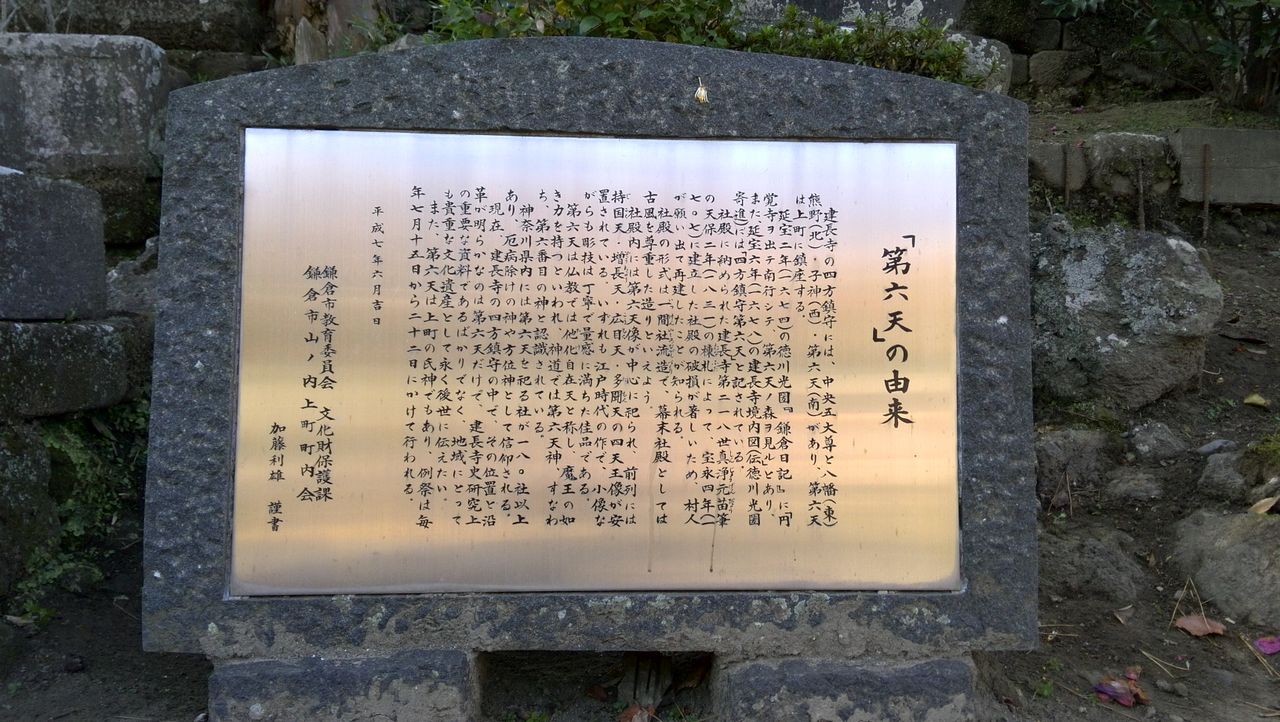 「第六天」の由来
建長寺の四方鎮守には、中央五大尊と、八幡(東)
熊野(北)・子神(西)、第六天(南)があり、第六天
は上町に鎮座する。
延宝二年(一六七四)の徳川光圀『鎌倉日記』に「円
覚寺ヲ出テ南行シテ、第六天ノ森ヲ見ル」とあり、
また、延宝六年(一六七八)の建長寺境内図(伝徳川光圀
寄進)には「四方鎮守第六天」と記されている。
社殿に納められた建長寺第二一八世真浄元苗筆
の天保二年(一八三一)の棟札によって、宝永四年(一
七〇七)に建立した社殿の破損が著しいため、村人
が願い出て再建したことが知られる。
社殿の形式は一間社流造で、幕末社殿としては
古風を尊重した造りといえよう。
社殿内には第六天像が中心に祀られ、前列には
持国天・増長天・広目天・多聞天の四天王像が安
置されている。いずれも江戸時代の作で、小像な
がらも彫技は丁寧で量感に満ちた佳品である。
第六天は仏教では他化自在天と称し、魔王の如
き力を持つといわれ、神道では第六天神、すなわ
ち、第六番目の神と認識されている。
神奈川県内には第六天を祀る社が一八〇社以上
あり、厄病除けの神や方位神として信仰される。
現在、建長寺の四方鎮守の中で、その位置と沿
革が明らかなのは第六天だけで、建長寺史研究上
の重要な資料であるばかりでなく、地域にとって
も貴重な文化遺産として永く後世に伝えたい。
また、第六天は上町の氏神でもあり、例祭は毎
年七月十五日から二十二日にかけて行われる。
平成七年六月吉日
鎌倉市教育委員会 文化財保護課
鎌倉市山ノ内上町町内会
加藤利雄 謹書